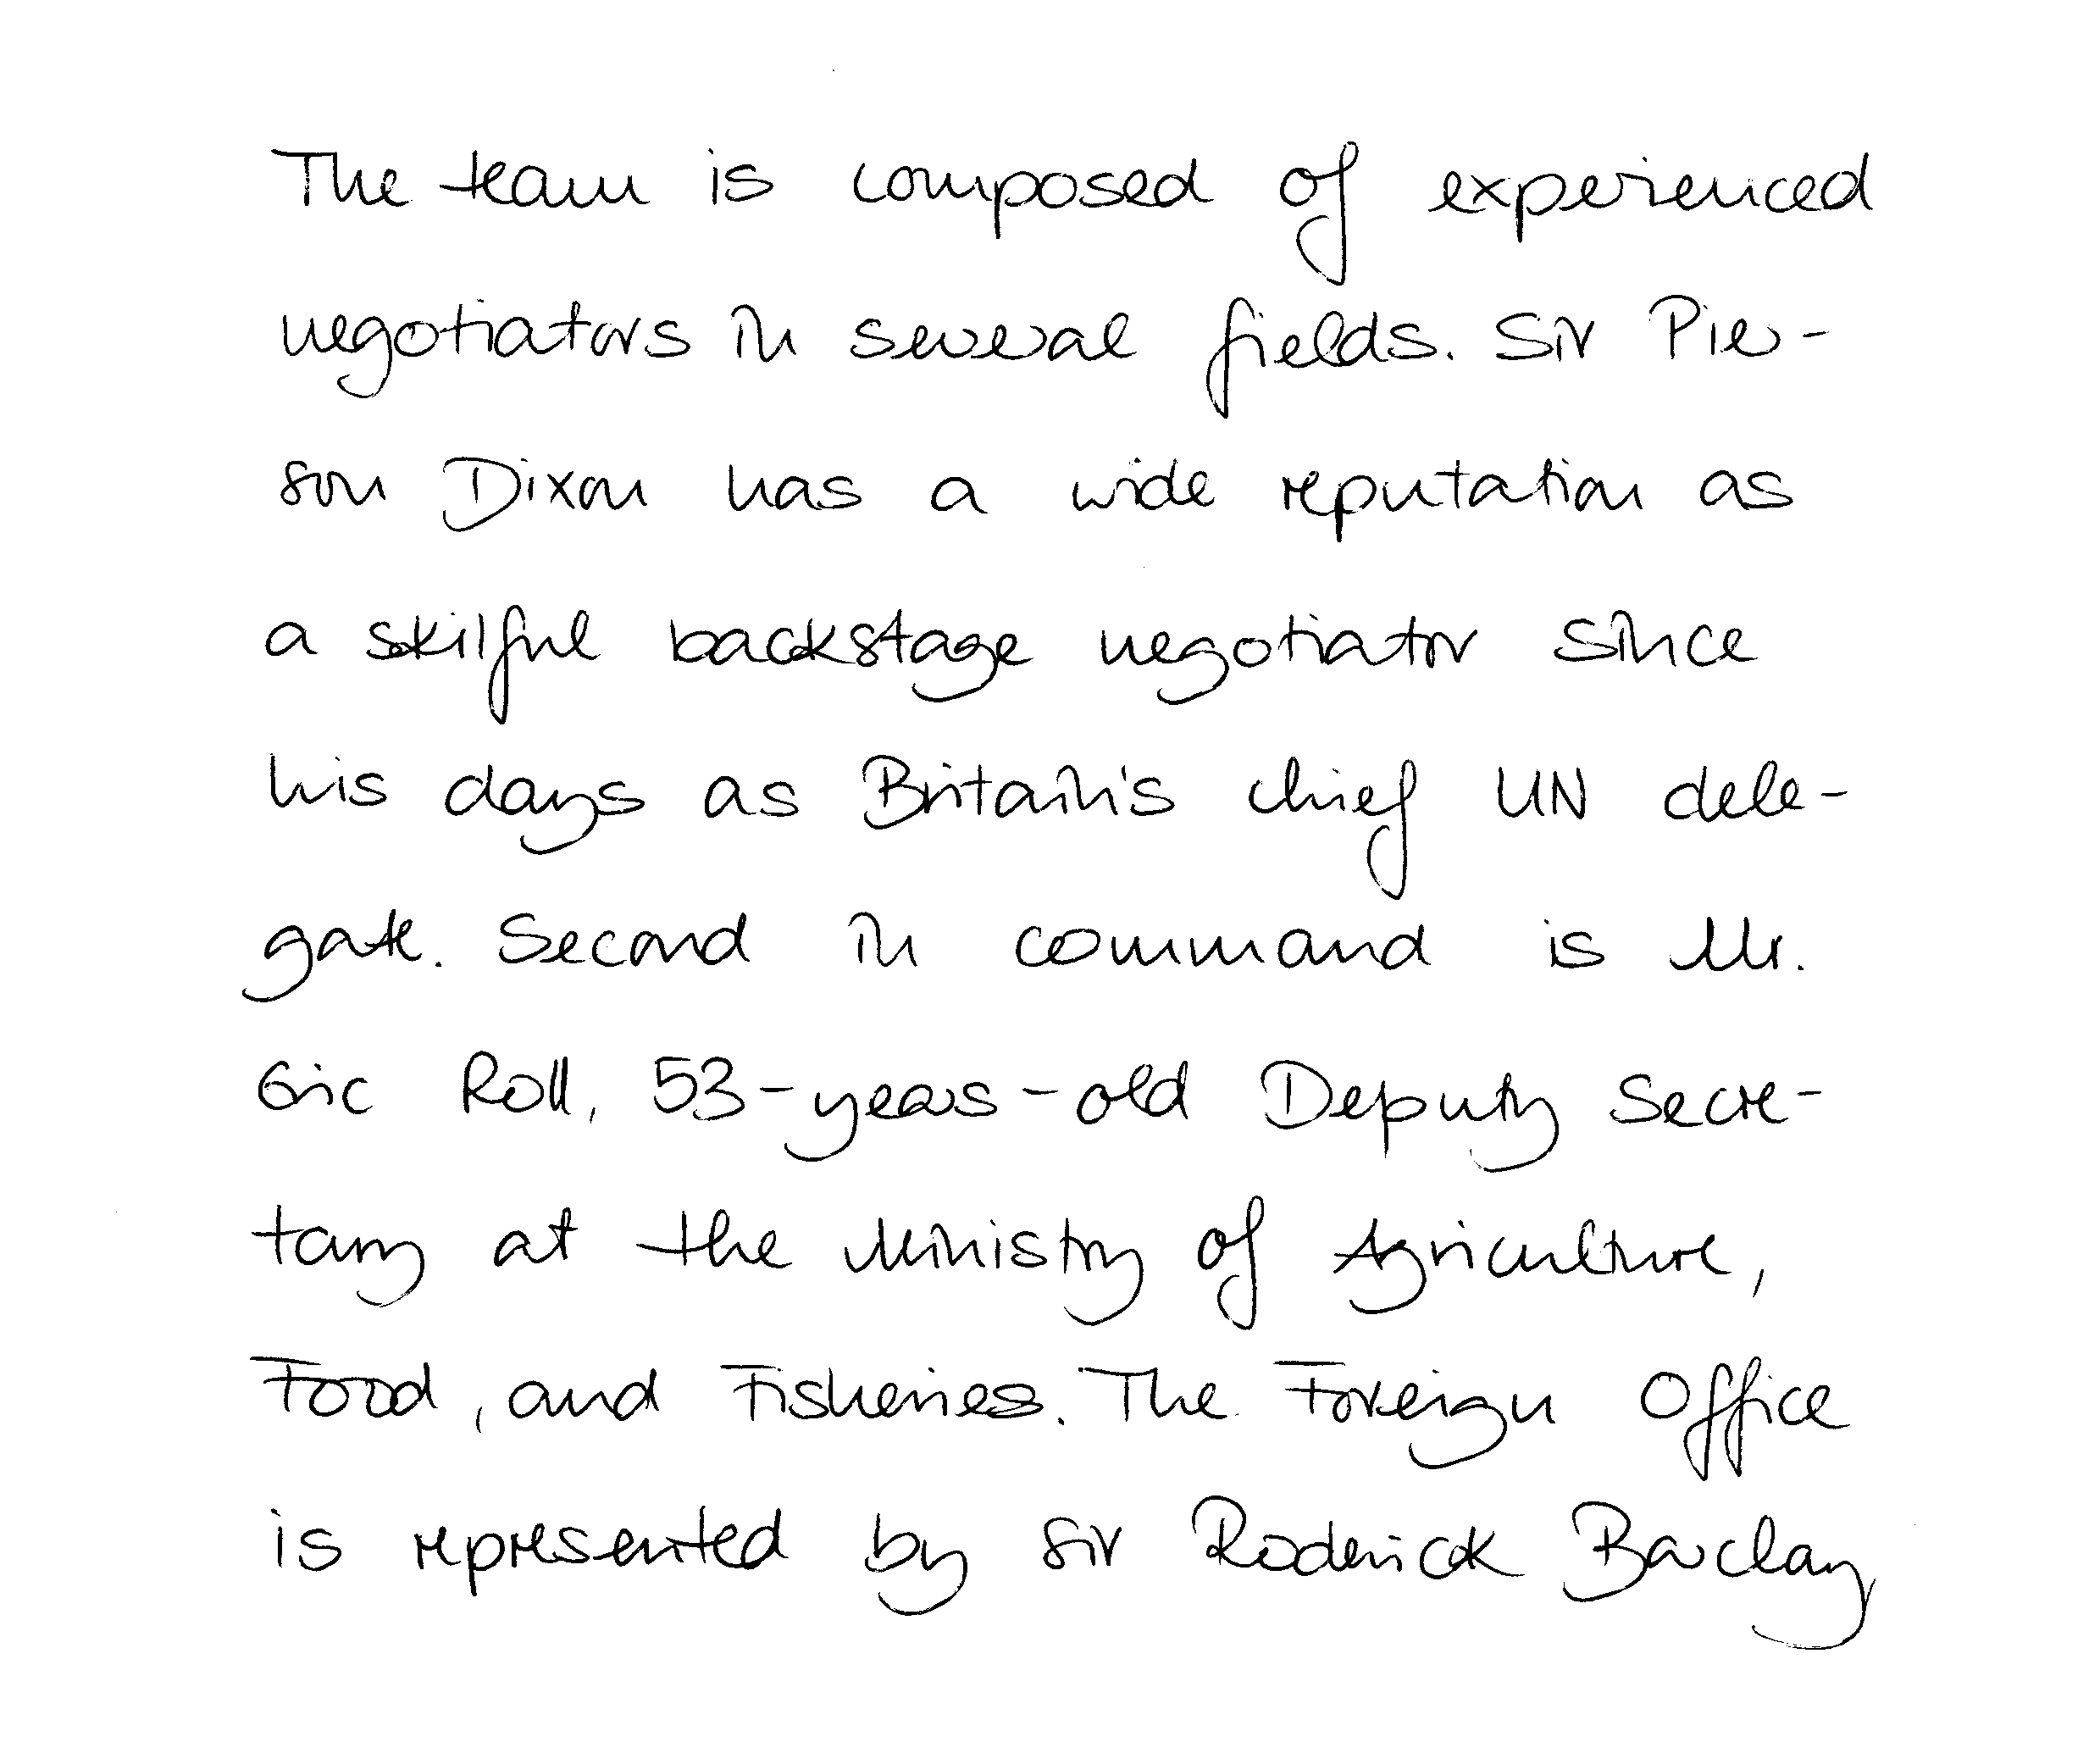 The team is composed of experienced
negotiators in several fields. Sir Pier-
son Dixon has a wide reputation as
a skilful backstage negotiator since
his days as Britain's chief UN dele-
gate. Second in command is Mr.
Eric Roll, 53-years-old Deputy Secre-
tary at the Ministry of Agriculture,
Food, and Fisheries. The Foreign Office
is represented by Sir Roderick Barclay,